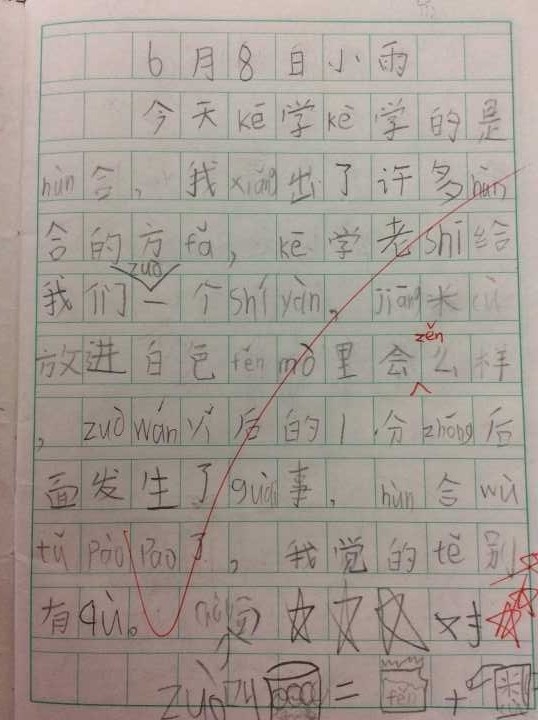 6月8日小雨
今天kē学kè学的是
hùn合，我xiǎng出了许多hùn
合的方fǎ，kē学老shī给
zuò
我们一个shí yàn，jiāng米cù
zěn
放进白色fěn mò里会么样
，zuò wán以后的1分zhōng后
面发生了guài事，hùn合wù
tǔ pào pao了，我觉的tè别
有qù。
zuò
= fěn + 米